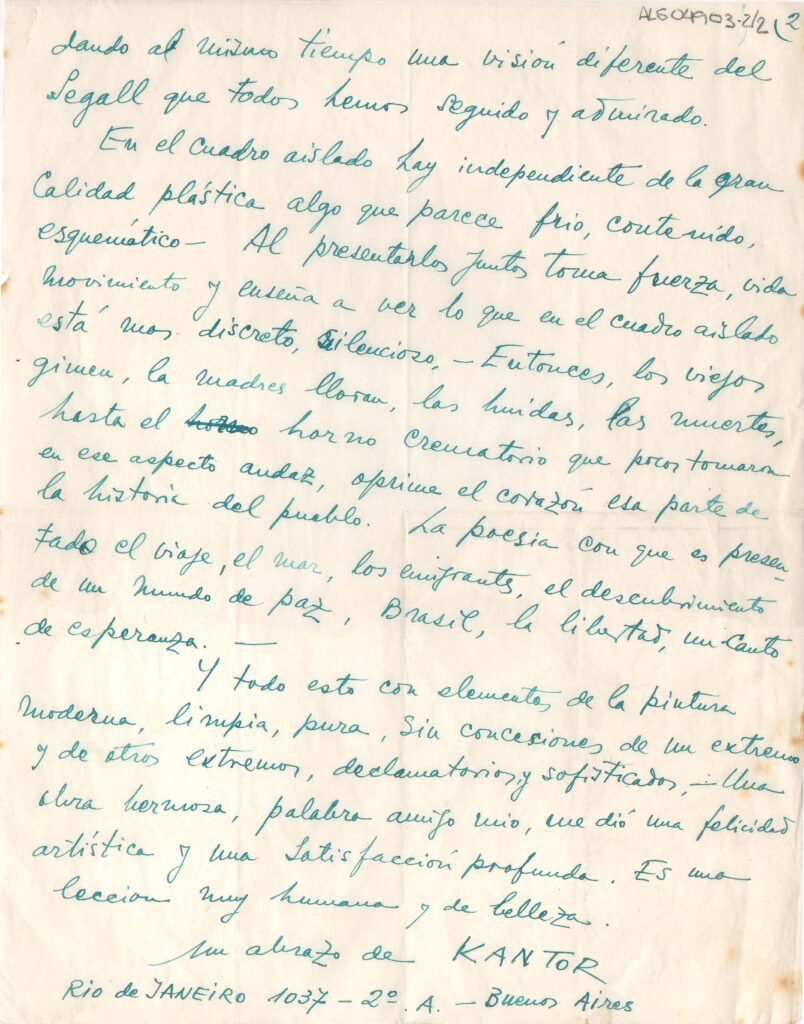 ALS 04903-2/2 (2
dando al mismo tiempo una visión diferente del
Segall que todos hemos seguido y admirado.
En el cuadro aislado hay independiente de la gran
Calidad plástica algo que parece frio, contenido,
esquemático — Al presentarlos juntos toma fuerza, vida
movimiento y enseña a ver lo que en el cuadro aislado
está mas discreto, silencioso, — Entonces, los viejos
gimen, la madres lloran, las huidas, las muertes,
hasta el horno horno crematorio que pocos tomaron
en ese aspecto audaz, oprime el corazón esa parte de
la historia del pueblo. La poesia con que es presen-
tado el viaje, el mar, los emigrantes, el descubrimiento
de un mundo de paz, Brasil, la libertad, un canto
de esperanza. —
Y todo esto con elementos de la pintura
moderna, limpia, pura, sin concesiones de un extremo
y de otros extremos, declamatorios y sofisticados, — Una
obra hermosa, palabra amigo mio, me dió una felicidad
artística y una satisfacción profunda. Es una
leccion muy humana y de belleza.
un abrazo de KANTOR
RIO de JANEIRO 1037 — 2º. A. — Buenos Aires